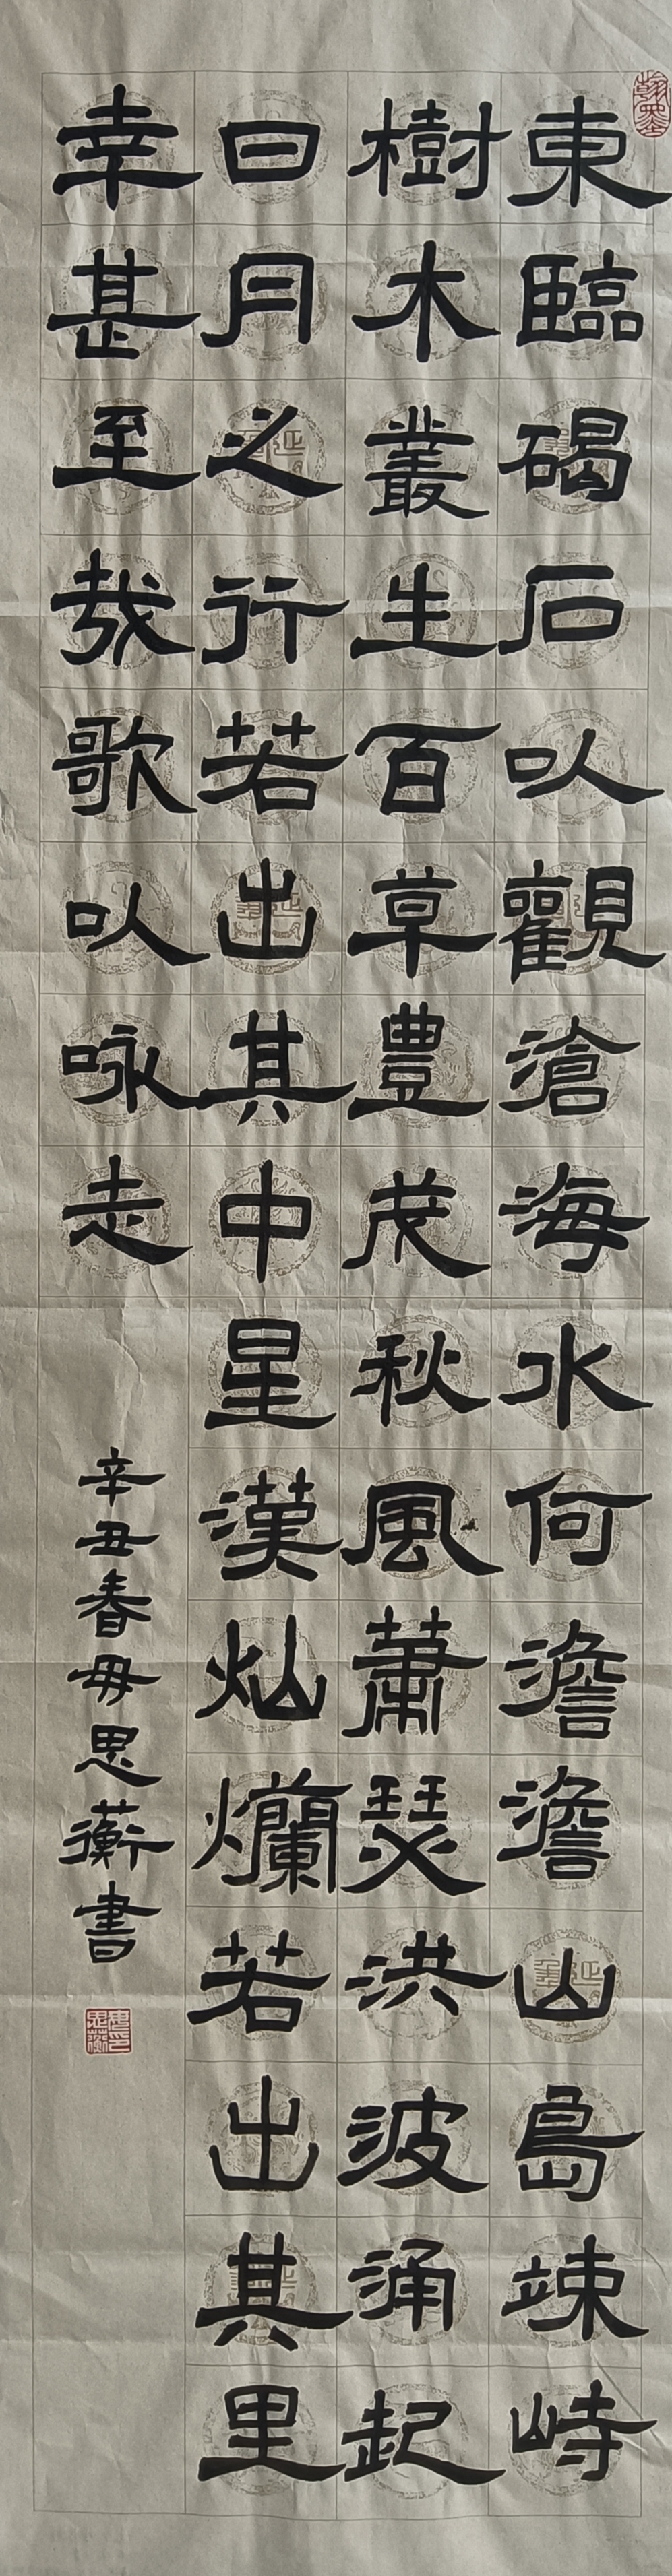 翰墨
東臨碣石以觀滄海水何澹澹山島竦峙
樹木叢生百草豊茂秋風蕭瑟洪波涌起
日月之行若出其中星漢灿爛若出其里
幸甚至哉歌以咏志
辛丑春毋思蘅書